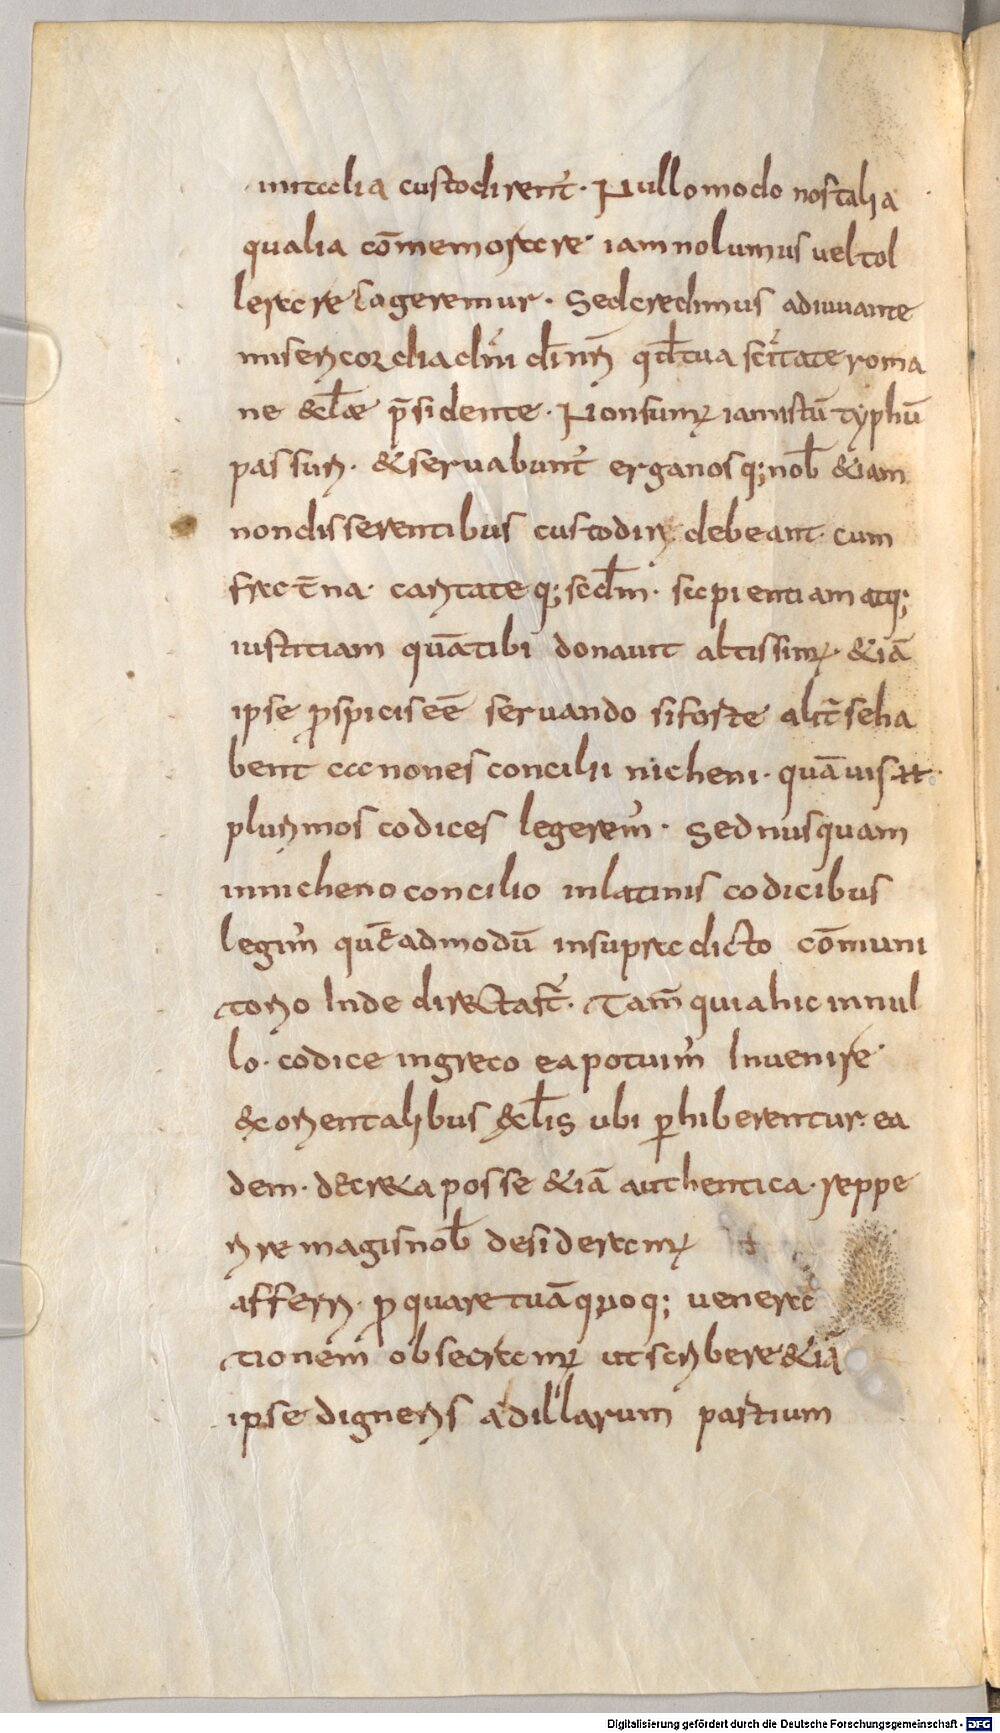 initalia custodirent̄. Nullomodo nos talia
qualia cōmemorare. iam nolumus vel tol
lerare cogeremur. Sed credimus adiuvante
misericordia dn̄i dī nr̄i qd̄ tua scītate roma
ne &cl̄ae p̄sidente. Non sumus iam istū typhū
passuri. & servabunt̄ erga nos q; nob̄ &iam
non disserentibus custodiri debeant. cum
frat̄na. caritate q; scdm̄. sapientiam atq;
iustitiam quā tibi donavit altissimus. &iā
ipse p̱spicis eē servando si forte alit̄ se ha
bent canones concilii nicheni. quāvis &
plurimos codices legerem̄. Sed nusquam
in nicheno concilio in latinis codicibus
legim̄ quēadmodū in supradicto cōmuni
torio Inde directa st̄. Tam̄ quia hic in nul
lo. codice in greco ea potuim̄ Invenire.
& orientalibus &cl̄is ubi p̱hiberentur. ea
dem. decr&a posse &iā authentica. reppe
rire magis nob̄ desideramus
afferri. p̱ quare tuā quoq; venera
tionem obsecramus ut scribere &iā
ipse digneris ad illarum partium
Digitalisierung gefördert durch die Deutsche Forschungsgemeinschaft - DFG